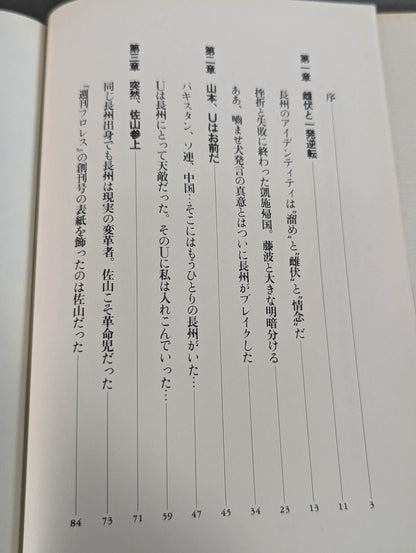 序 3
第一章 雌伏と一発逆転 11
長州のアイデンティティは“溜め”と“雌伏”と“情念”だ 13
挫折と失敗に終わった凱旋帰国。藤波と大きな明暗分ける 23
ああ、噛ませ犬発言の真意とはついに長州がブレイクした 34
第二章 山本、Uはお前だ 45
パキスタン、ソ連、中国…そこにはもうひとりの長州がいた… 47
Uは長州にとって天敵だった。そのUに私は入れこんでいった… 59
第三章 突然、佐山参上 71
同じ長州出身でも長州は現実の変革者。佐山こそ革命児だった 73
『週刊プロレス』の創刊号の表紙を飾ったのは佐山だった 84